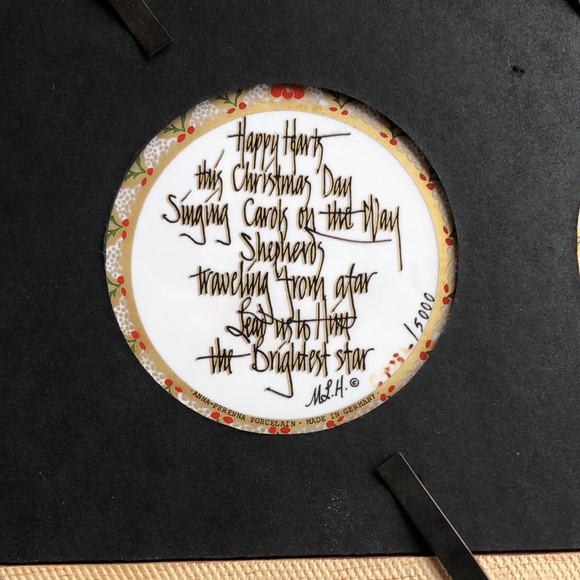 Happy Hearts
this Christmas Day
Singing Carols on the Way
Shepherds
traveling from afar
Lead us to Him
the Brightest star
M.L.H. ©
/5000
ANNA-PERENNA PORCELAIN · MADE IN GERMANY